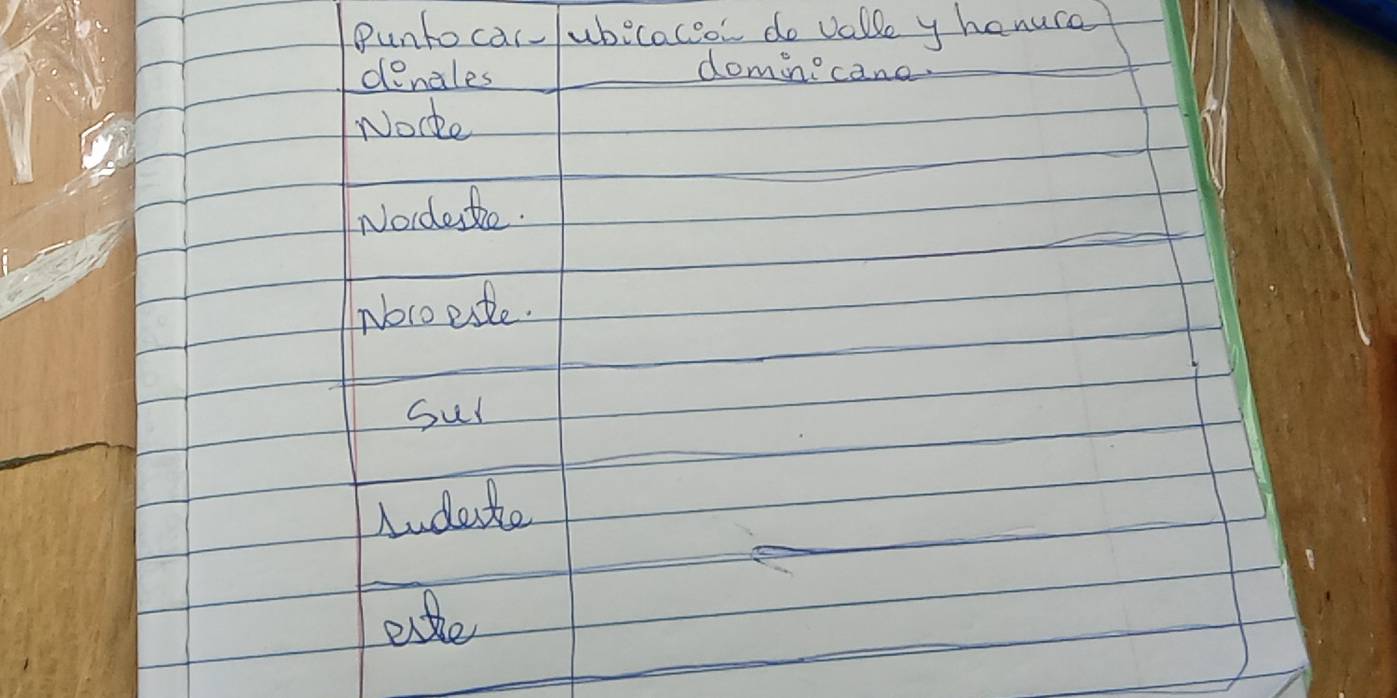 Punto car- ubicación de Valle y hanura
dinales dominicana.
Norte
Nordeste.
Noroeste.
Sur
Sudeste
este